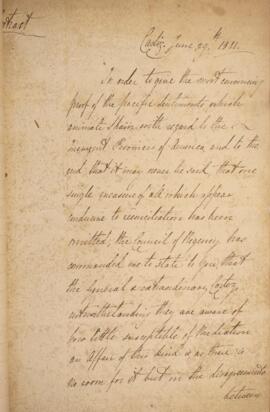 Extract
Cadiz June 29th 1811.
In order to give the most convincing
proof of the pacific sentiments which
animate Spain with regard to the
insurgent Provinces of America and to the
end, that it may never be said, that one
single measure of all which appear
conducive to reconciliation has been
omitted; the Council of Regency has
commanded me to state to You, that
the General & extraordinary Cortes,
notwithstanding they are aware of
how little susceptible of Mediation
an Affair of this kind is as there is
no room for it but in the disagreements
between